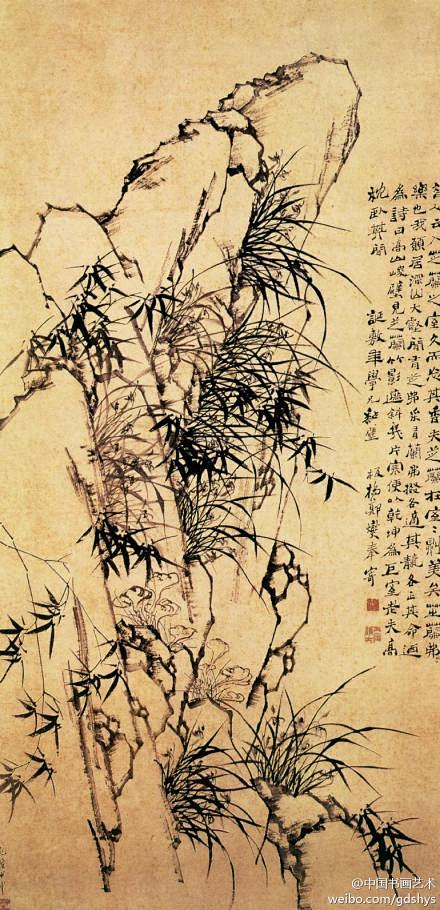 昔人云入芝蘭之室久而忘其香夫芝蘭在室〻則美矣芝蘭弗
樂也我願居深山大壑間有芝弗采有蘭弗掇各適其各正其命迺
為詩曰高山峻壁見芝蘭竹影遮斜幾片寒便以乾坤為巨室老夫高
枕臥其間 誕敷年學兄黏壁 板橋鄭燮奉寄
@中国书画艺术
weibo.com/gdshys